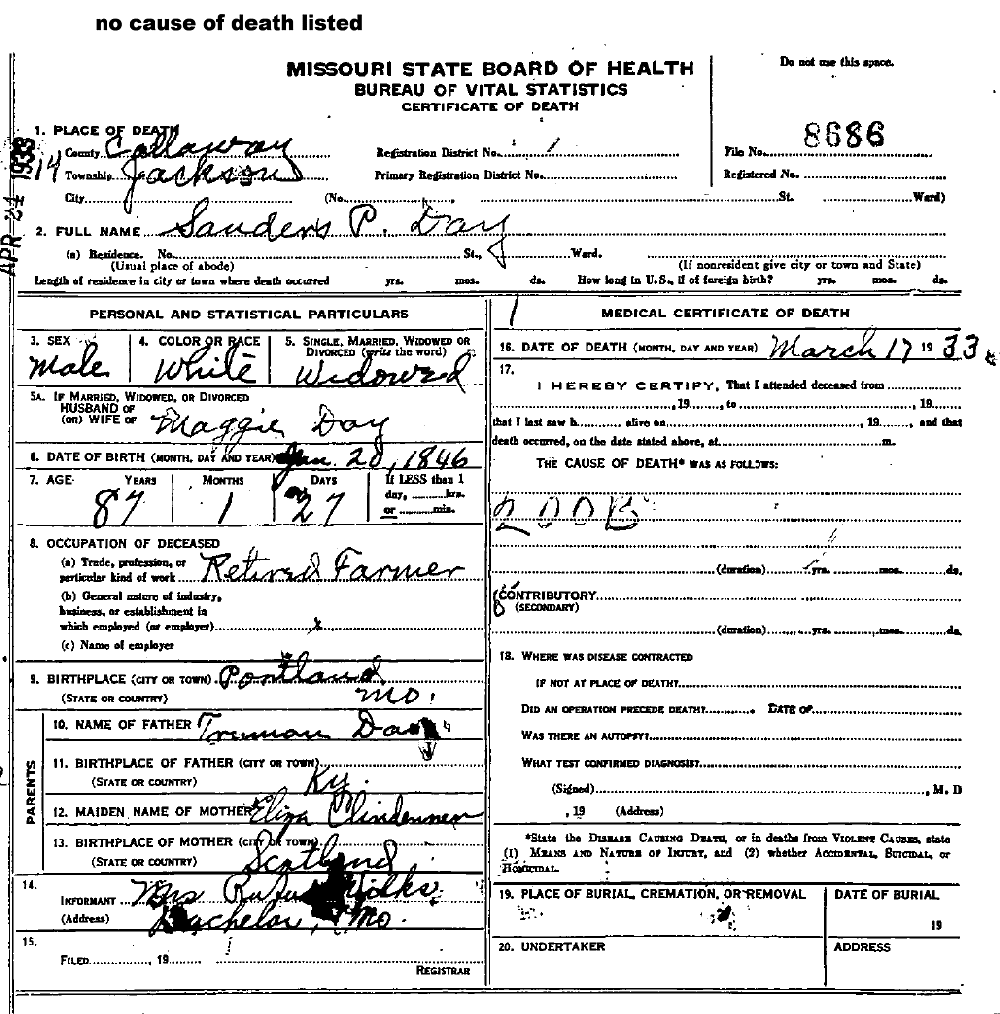 no cause of death listed
MISSOURI STATE BOARD OF HEALTH
BUREAU OF VITAL STATISTICS
CERTIFICATE OF DEATH
Do not use this space.
8686
APR 24 1933
1. PLACE OF DEATH
County Callaway Registration District No. File No.
14 Township Jackson Primary Registration District No. Registered No.
City (No. St. Ward)
2. FULL NAME Sanders P. Day
(a) Residence. No. St., Ward.
(Usual place of abode) (If nonresident give city or town and State)
Length of residence in city or town where death occurred yrs. mos. ds. How long in U.S., if of foreign birth? yrs. mos. ds.
PERSONAL AND STATISTICAL PARTICULARS
3. SEX 4. COLOR OR RACE 5. SINGLE, MARRIED, WIDOWED OR
DIVORCED (write the word)
Male White Widowed
5A. IF MARRIED, WIDOWED, OR DIVORCED
HUSBAND OF
(OR) WIFE OF Maggie Day
6. DATE OF BIRTH (MONTH, DAY AND YEAR) Jan. 20, 1846
7. AGE YEARS MONTHS DAYS If LESS than 1
day, hrs.
87 1 27 or min.
8. OCCUPATION OF DECEASED
(a) Trade, profession, or
particular kind of work Retired Farmer
(b) General nature of industry,
business, or establishment in
which employed (or employer) x
(c) Name of employer
9. BIRTHPLACE (CITY OR TOWN) Portland
(STATE OR COUNTRY) Mo.
PARENTS
10. NAME OF FATHER Truman Day
11. BIRTHPLACE OF FATHER (CITY OR TOWN)
(STATE OR COUNTRY) Ky.
12. MAIDEN NAME OF MOTHER Eliza Clindennen
13. BIRTHPLACE OF MOTHER (CITY OR TOWN)
(STATE OR COUNTRY) Scotland
14.
INFORMANT Mrs Rufus Wilks
(Address) Bachelor, Mo.
15.
FILED , 19
REGISTRAR
MEDICAL CERTIFICATE OF DEATH
16. DATE OF DEATH (MONTH, DAY AND YEAR) March 17 1933
17.
I HEREBY CERTIFY, That I attended deceased from
, 19 , to , 19
that I last saw h alive on , 19 , and that
death occurred, on the date stated above, at m.
THE CAUSE OF DEATH* WAS AS FOLLOWS:
200B
(duration) yrs. mos. ds.
CONTRIBUTORY
(SECONDARY)
(duration) yrs. mos. ds.
18. WHERE WAS DISEASE CONTRACTED
IF NOT AT PLACE OF DEATH?
DID AN OPERATION PRECEDE DEATH? DATE OF
WAS THERE AN AUTOPSY?
WHAT TEST CONFIRMED DIAGNOSIS?
(Signed) , M. D
, 19 (Address)
*State the DISEASE CAUSING DEATH, or in deaths from VIOLENT CAUSES, state
(1) MEANS AND NATURE OF INJURY, and (2) whether ACCIDENTAL, SUICIDAL, or
HOMICIDAL.
19. PLACE OF BURIAL, CREMATION, OR REMOVAL DATE OF BURIAL
19
20. UNDERTAKER ADDRESS